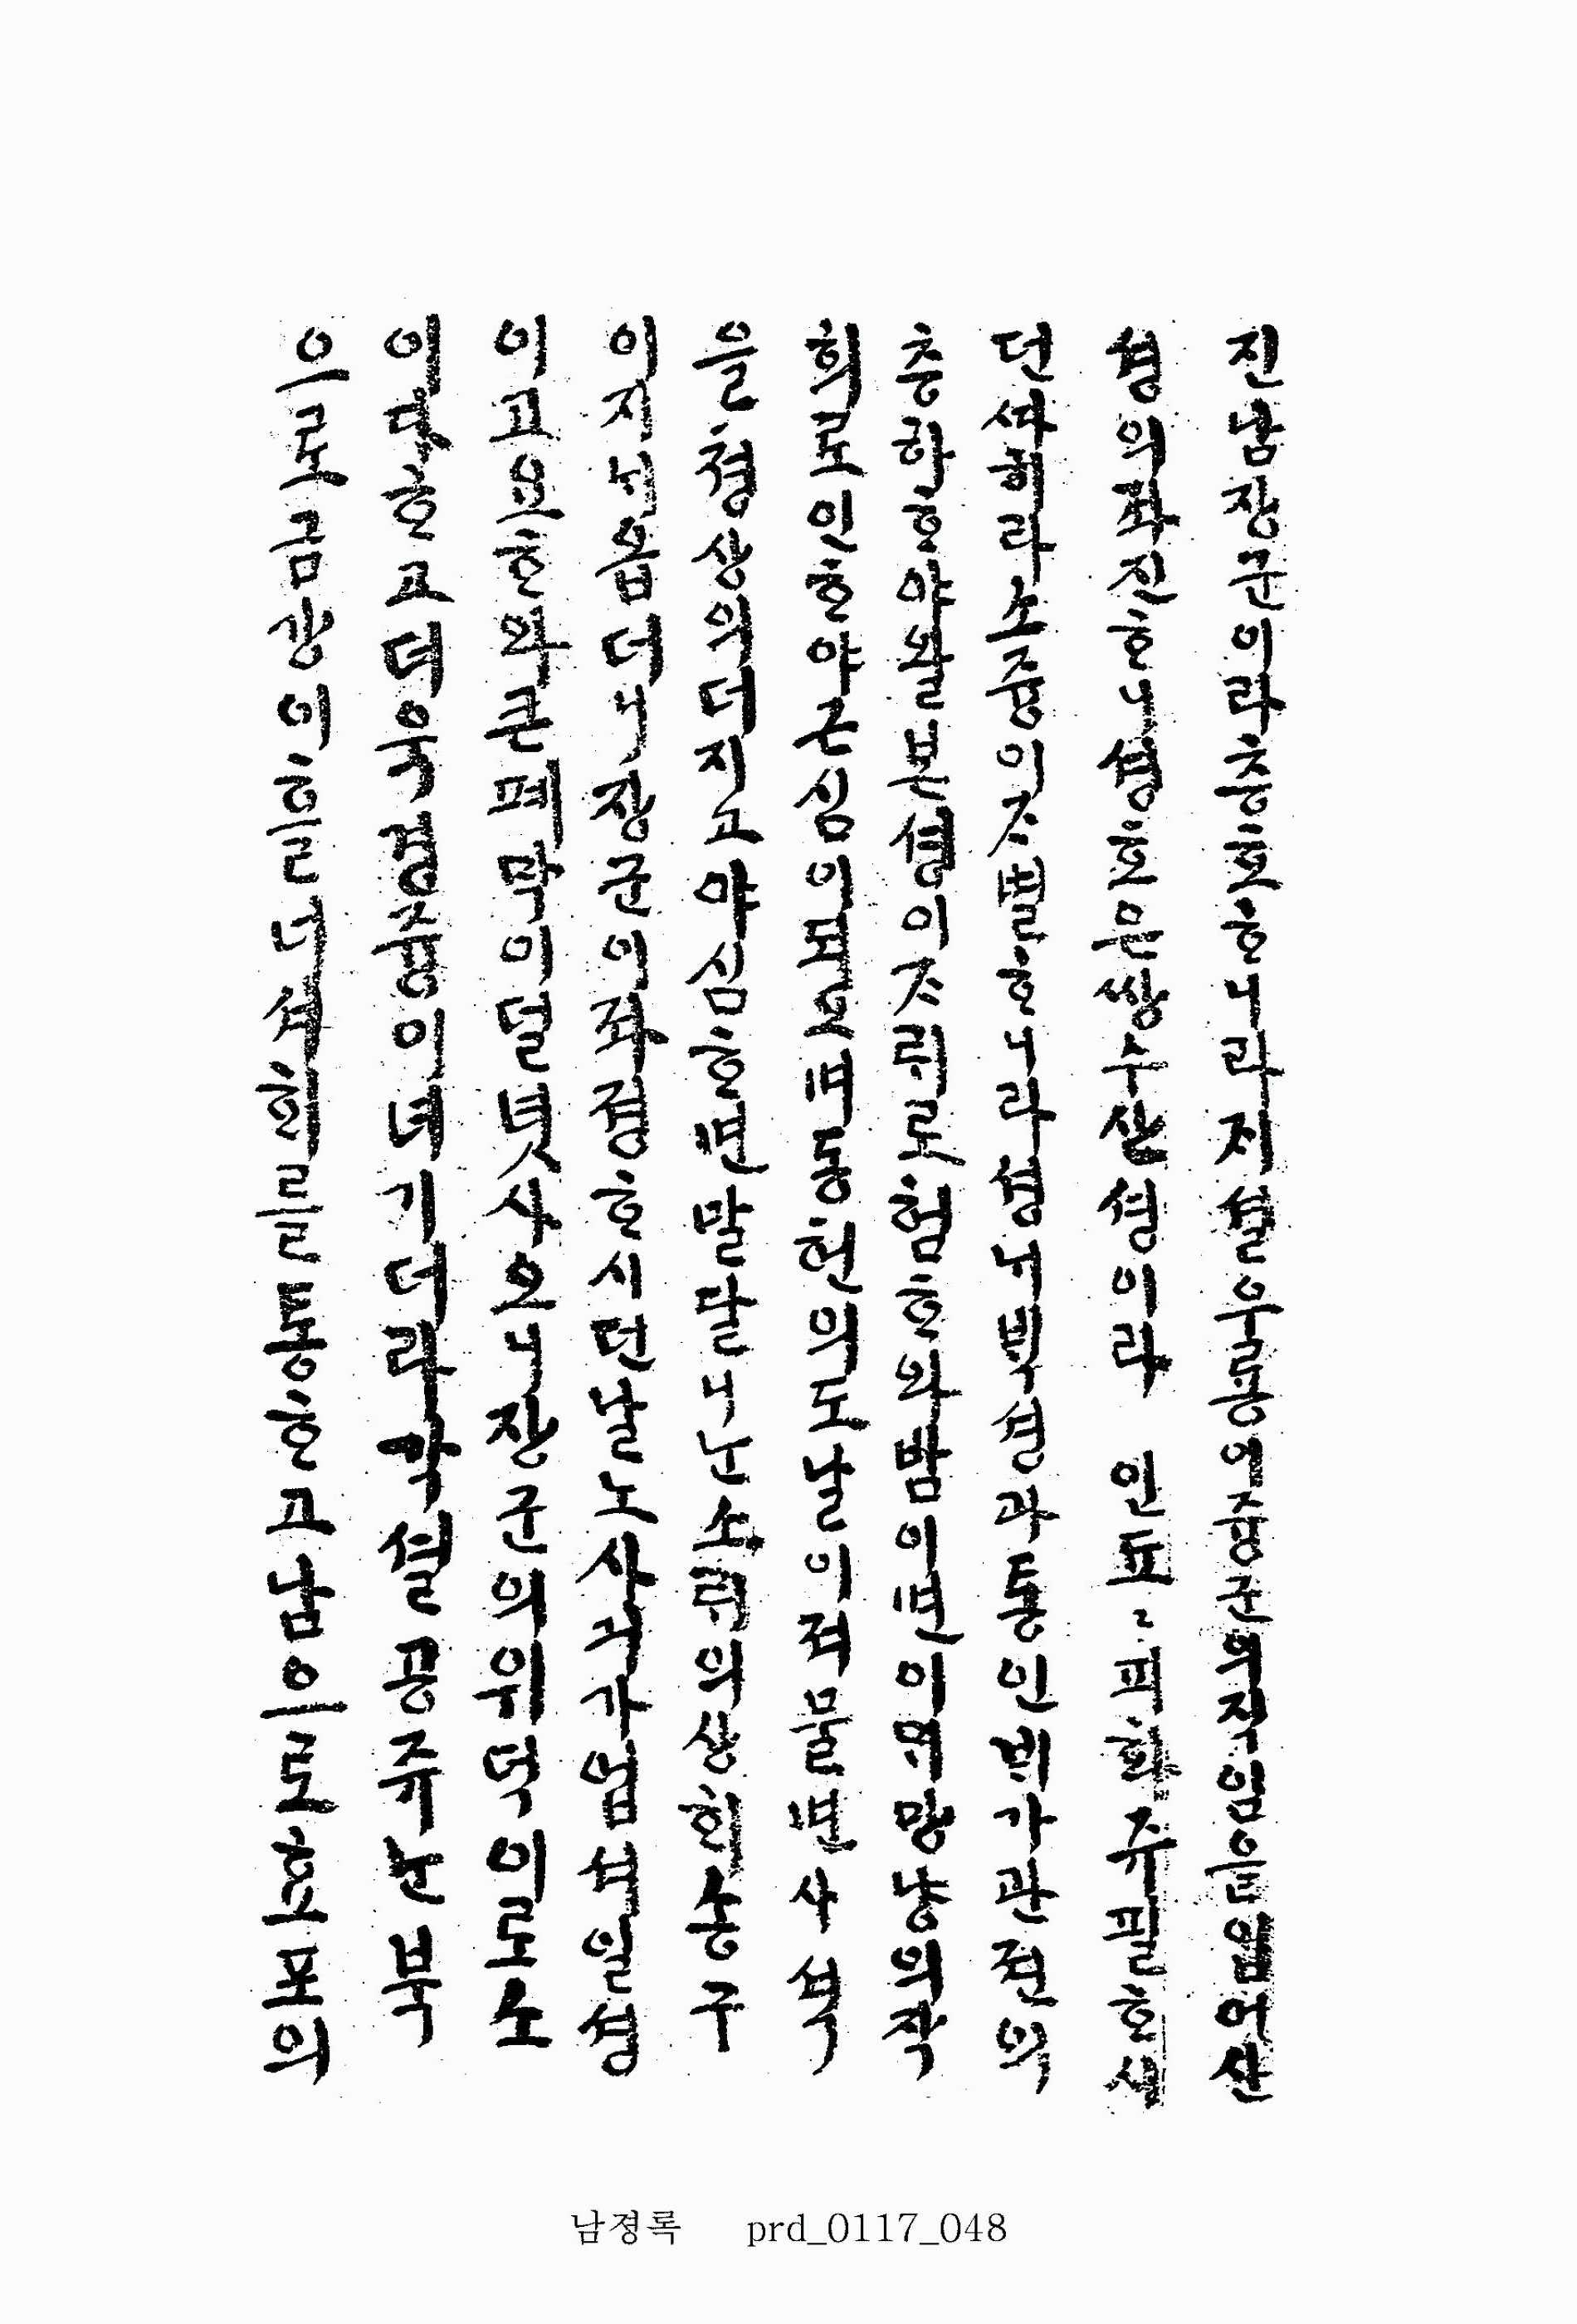 진남장군이라층호ᄒᆞ니라지셜우룡이즁군의직임을임어산
셩의좌진ᄒᆞ니셩호은쌍수산셩이라 인됴〻피화쥬필ᄒᆞ새
던ᄯᅡ히라소즁이ᄌᆞ별ᄒᆞ니라셩ᄂᆡᄇᆡᆨ셩과통인ᄇᆡ가관젼의
층하ᄒᆞ야ᄡᅡᆯ본셩이ᄌᆞ뤼로험ᄒᆞ와밤이면이ᄆᆡ망냥의작
희로인ᄒᆞ야근심이되오며동헌의도날이져물면사셕
을쳥상의더지고야심ᄒᆞ면말달니ᄂᆞᆫ소ᄅᆡ의상회송구
이지ᄂᆡ옵더니장군이좌졍ᄒᆞ시던날노사긔가엄셔일셩
이고요ᄒᆞ와큰폐막이덜녓사오니장군의위덕이로소
이다ᄒᆞ고더욱경즁이녀기더라각셜공쥬ᄂᆞᆫ북
으로금강이흘너셔ᄒᆡ를통ᄒᆞ고남으로효포의
남졍록 prd_0117_048